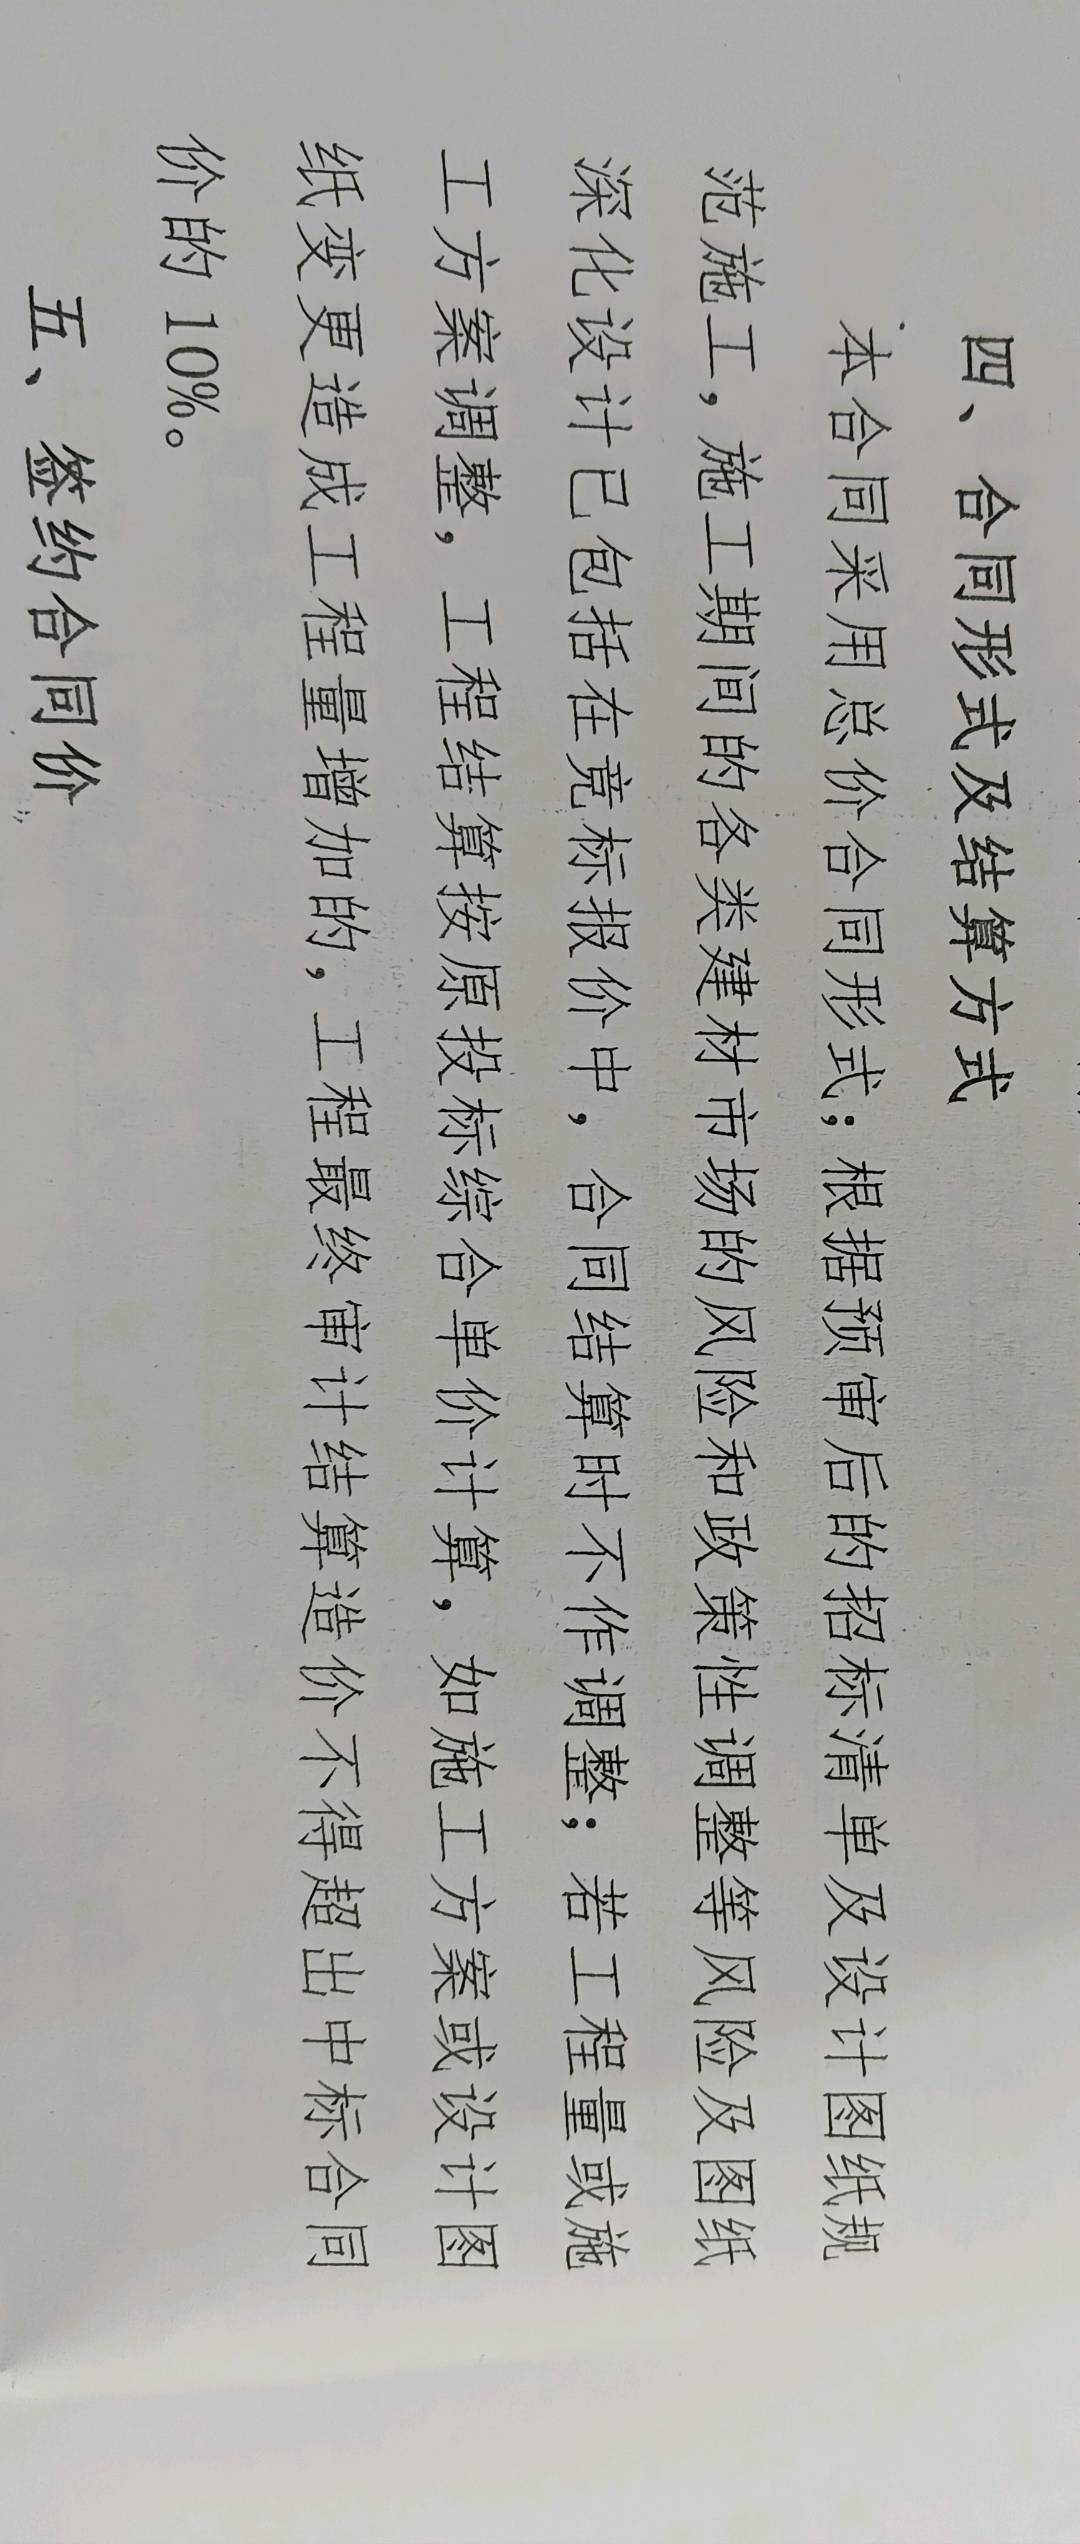 四、合同形式及结算方式
本合同采用总价合同形式；根据预审后的招标清单及设计图纸规
范施工，施工期间的各类建材市场的风险和政策性调整等风险及图纸
深化设计已包括在竞标报价中，合同结算时不作调整；若工程量或施
工方案调整，工程结算按原投标综合单价计算，如施工方案或设计图
纸变更造成工程量增加的，工程最终审计结算造价不得超出中标合同
价的 10%。
五、签约合同价